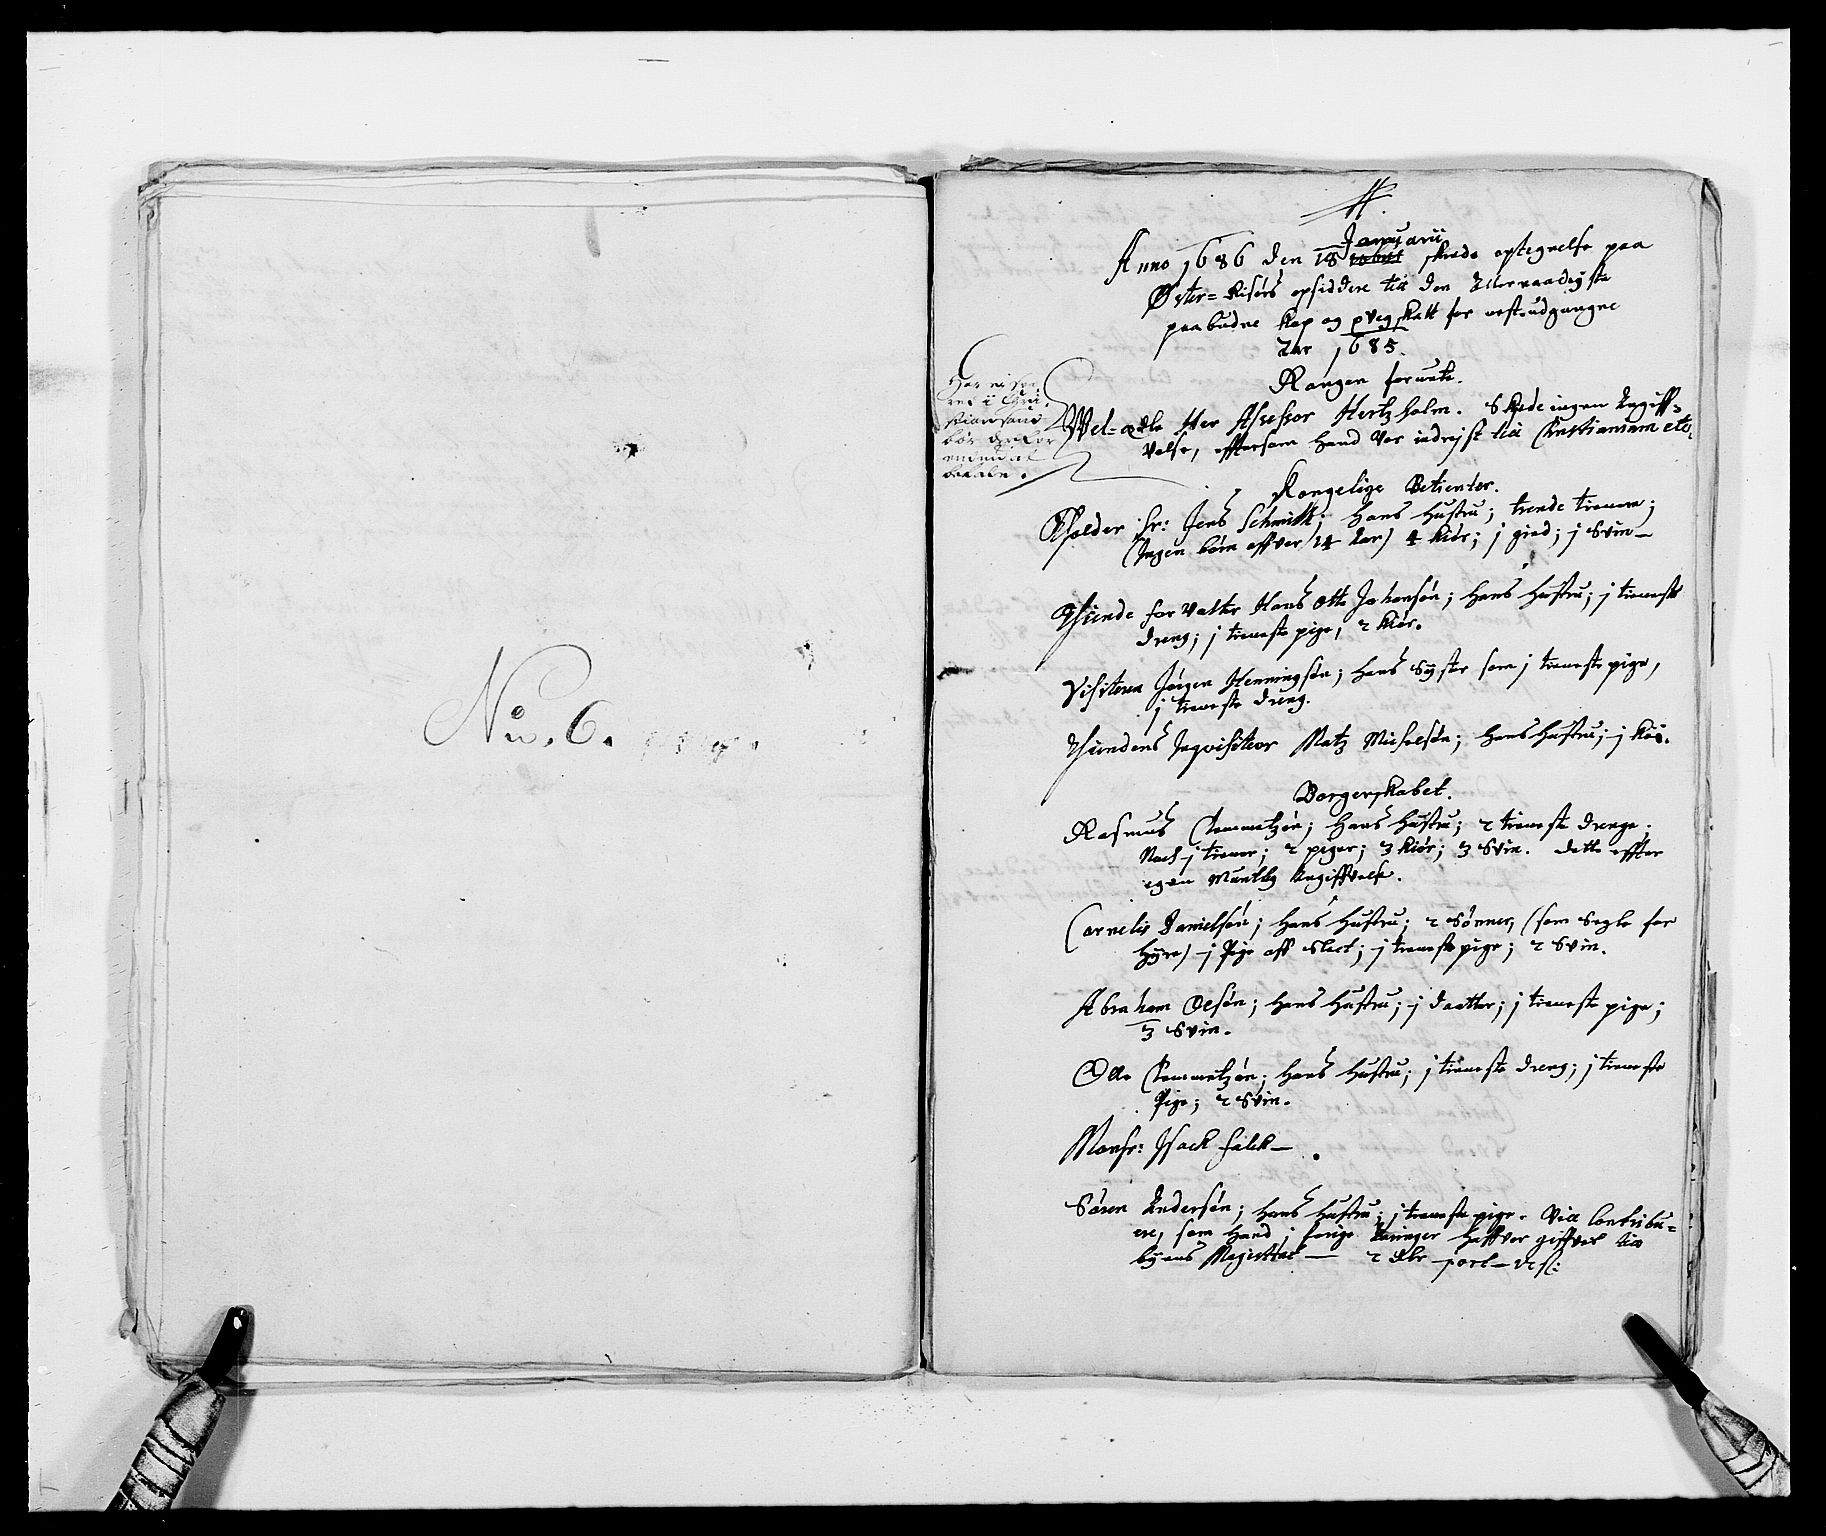 No. 6.
Januarii
Anno 1686 den 18 skede optegnelse paa
Øster-Risørs opsiddere til den Allernaadigste
paabudne Kop og qveg skatt for nest udgangne
Aar 1685.
Rangen forvante.
Wel-ædle Her Assessor Hertzholm. Skede ingen Angiff-
velse, efftersom hand var indrejst til Christianiam etc.
Kongelige Betienter.
Tholder Sr: Jens Schmitt; hans Hustru; trende tienere;
(Ingen børn offver 14 Aar) 4 kiør; j gied; j Svin—
Thinde forvalter Hans Otto Johansøn; hans hustru; j tieneste
dreng; j tieneste pige; 2 kiør.
Visitern Jørgen Henningsøn; hans Syster som j tieneste pige,
j tieneste dreng.
Thiendens Inqvisiteor Matz Michelsøn; hans hustru; j koe.
Borgerskabet.
Rasmus Clemmetzøn; hans hustru; 2 tieneste drenge;
Noch j tiener; 2 piger; 3 kiør; 3 Svin. dette effter
egen Muntlig Angiffvelse.
Cornelis Danielsøn; hans hustru; 2 Sønner, (som Segle for
hyre) j Pige aff Slect; j tieneste pige; 2 Svin.
Abraham Olsøn; hans hustru; j daatter; j tieneste pige;
3 Svin.
Olle Clemmetzøn; hans hustru; j tieneste dreng; j tieneste
Pige; 2 Svin.
Monsr: Isack Falck—
Søren Andersøn; hans hustru; j tieneste pige. Vil Contribu-
ere, som hand j forige haffver giffvet til
byens Magistrat — 2 port
Har
ret i Chri-
stiansand
bør derfor
betale.